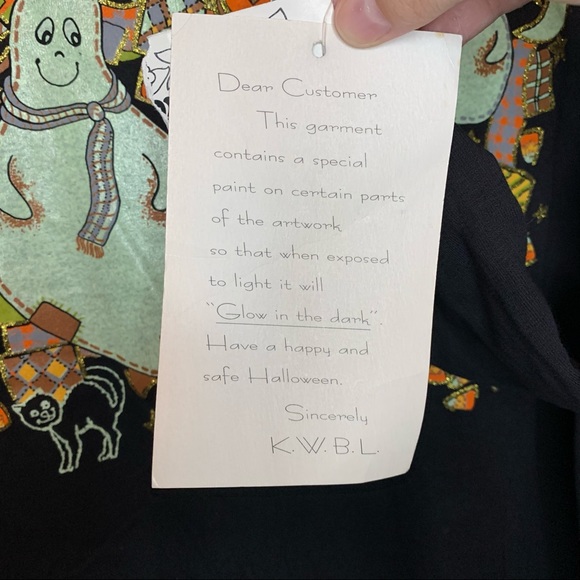 Dear Customer
This garment
contains a special
paint on certain parts
of the artwork
so that when exposed
to light it will
"Glow in the dark".
Have a happy and
safe Halloween.
Sincerely
K.W.B.L.